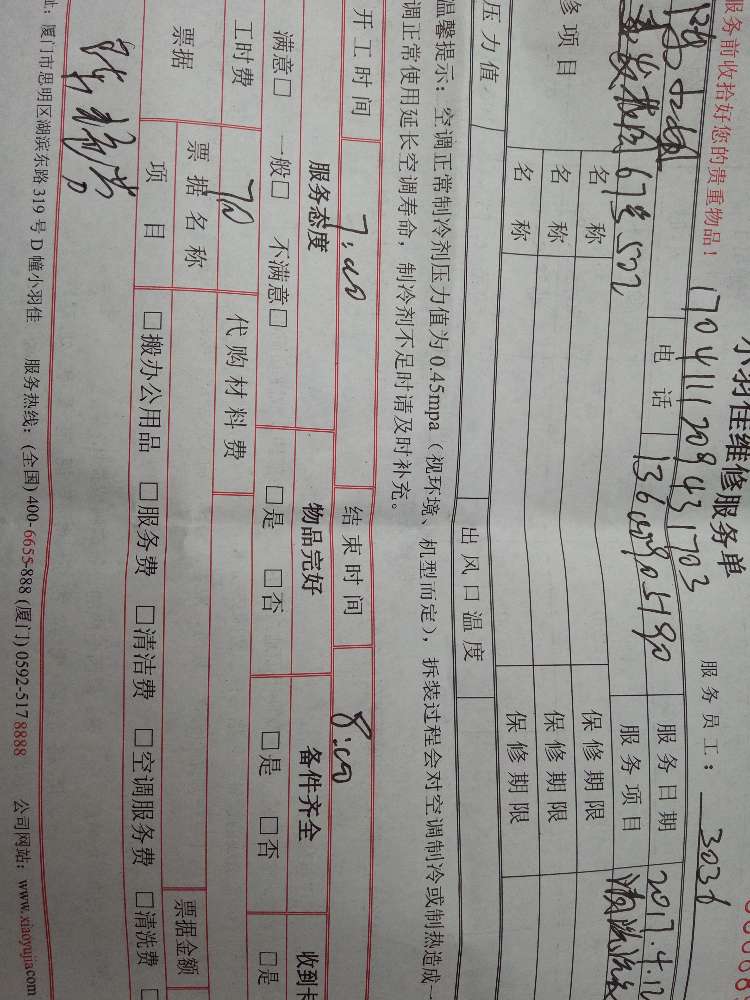 小羽佳维修服务单
服务前收拾好您的贵重物品！
1704111209431703
服务员工：3036
电话
服务日期 2017.4.12
67号502
服务项目
修项目
名称 保修期限
名称 保修期限
名称 保修期限
压力值 出风口温度
温馨提示：空调正常制冷剂压力值为0.45mpa（视环境、机型而定），拆装过程会对空调制冷或制热造成一
调正常使用延长空调寿命，制冷剂不足时请及时补充。
开工时间 7:00 结束时间 8:00
服务态度 物品完好 备件齐全 收到卡
满意□ 一般□ 不满意□ □是 □否 □是 □否 □是
工时费 70 代购材料费
票据 票据名称 票据金额
项目 □搬办公用品 □服务费 □清洁费 □空调服务费 □清洗费 □
址：厦门市思明区湖滨东路319号D幢小羽佳 服务热线：(全国)400-6655-888 (厦门)0592-517 8888 公司网站：www.xiaoyujia.com